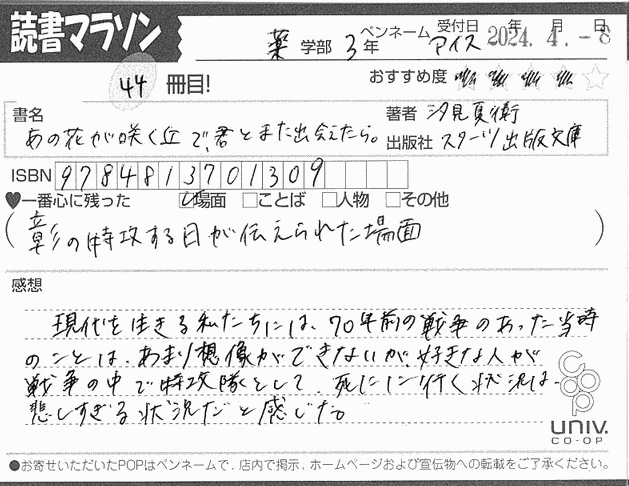 読書マラソン
薬 学部 3年 ペンネーム アイス 受付日 年 月 日 2024. 4. -8
44 冊目! おすすめ度
書名 あの花が咲く丘で、君とまた出会えたら。
著者 汐見夏衛
出版社 スターツ出版文庫
ISBN 9784813701309
♥一番心に残った ☑場面 □ことば □人物 □その他
(彰の特攻する日が伝えられた場面)
感想
現代を生きる私たちには、70年前の戦争のあった当時
のことは、あまり想像ができないが、好きな人が
戦争の中で特攻隊として、死にに行く状況は、
悲しすぎる状況だと感じた。
coop
univ.
CO-OP
●お寄せいただいたPOPはペンネームで、店内で掲示、ホームページおよび宣伝物への転載をご了承ください。